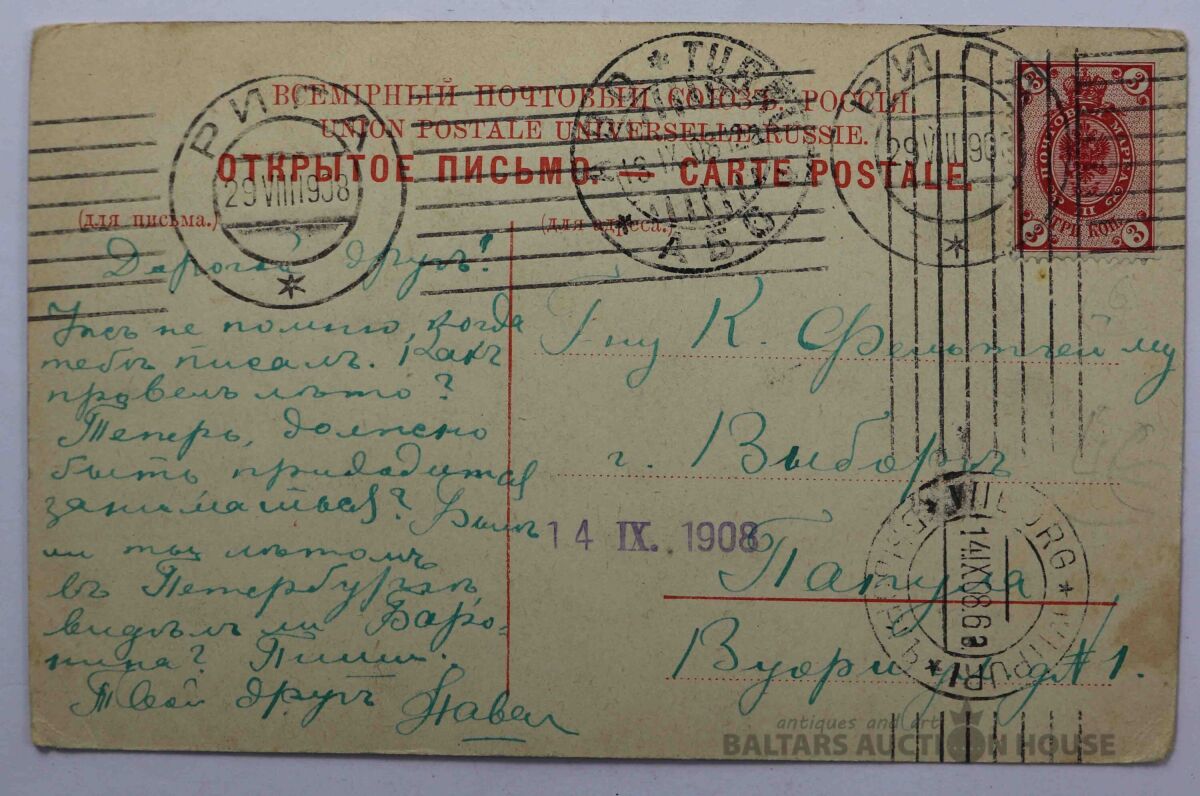 ВСЕМІРНЫЙ ПОЧТОВЫЙ СОЮЗЪ. РОССІЯ.
UNION POSTALE UNIVERSELLE RUSSIE.
ОТКРЫТОЕ ПИСЬМО. — CARTE POSTALE.
(для письма.)
(для адреса.)
РИГА
29 VIII 1908
ABO * TURKU
АБО
РИГА
29 VIII 1908
3 3
ПОЧТОВАЯ МАРКА
ТРИ КОП.
3 3
Дорогой другъ!
Ужъ не помню, когда
тебѣ писалъ. Какъ
провелъ лѣто?
Теперь, должно
быть придодится
заниматься? Былъ
ли ты лѣтомъ
въ Петербургѣ,
видѣлъ ли Баро-
нина? Пиши.
Твой другъ Павел
Г-ну К.
г. Выборгъ
Папула
№ 1.
14 IX. 1908
VIIBORG * WIIPURI * ВЫБОРГЪ
14.IX.08.6 a
antiques and art
BALTARS AUCTION HOUSE